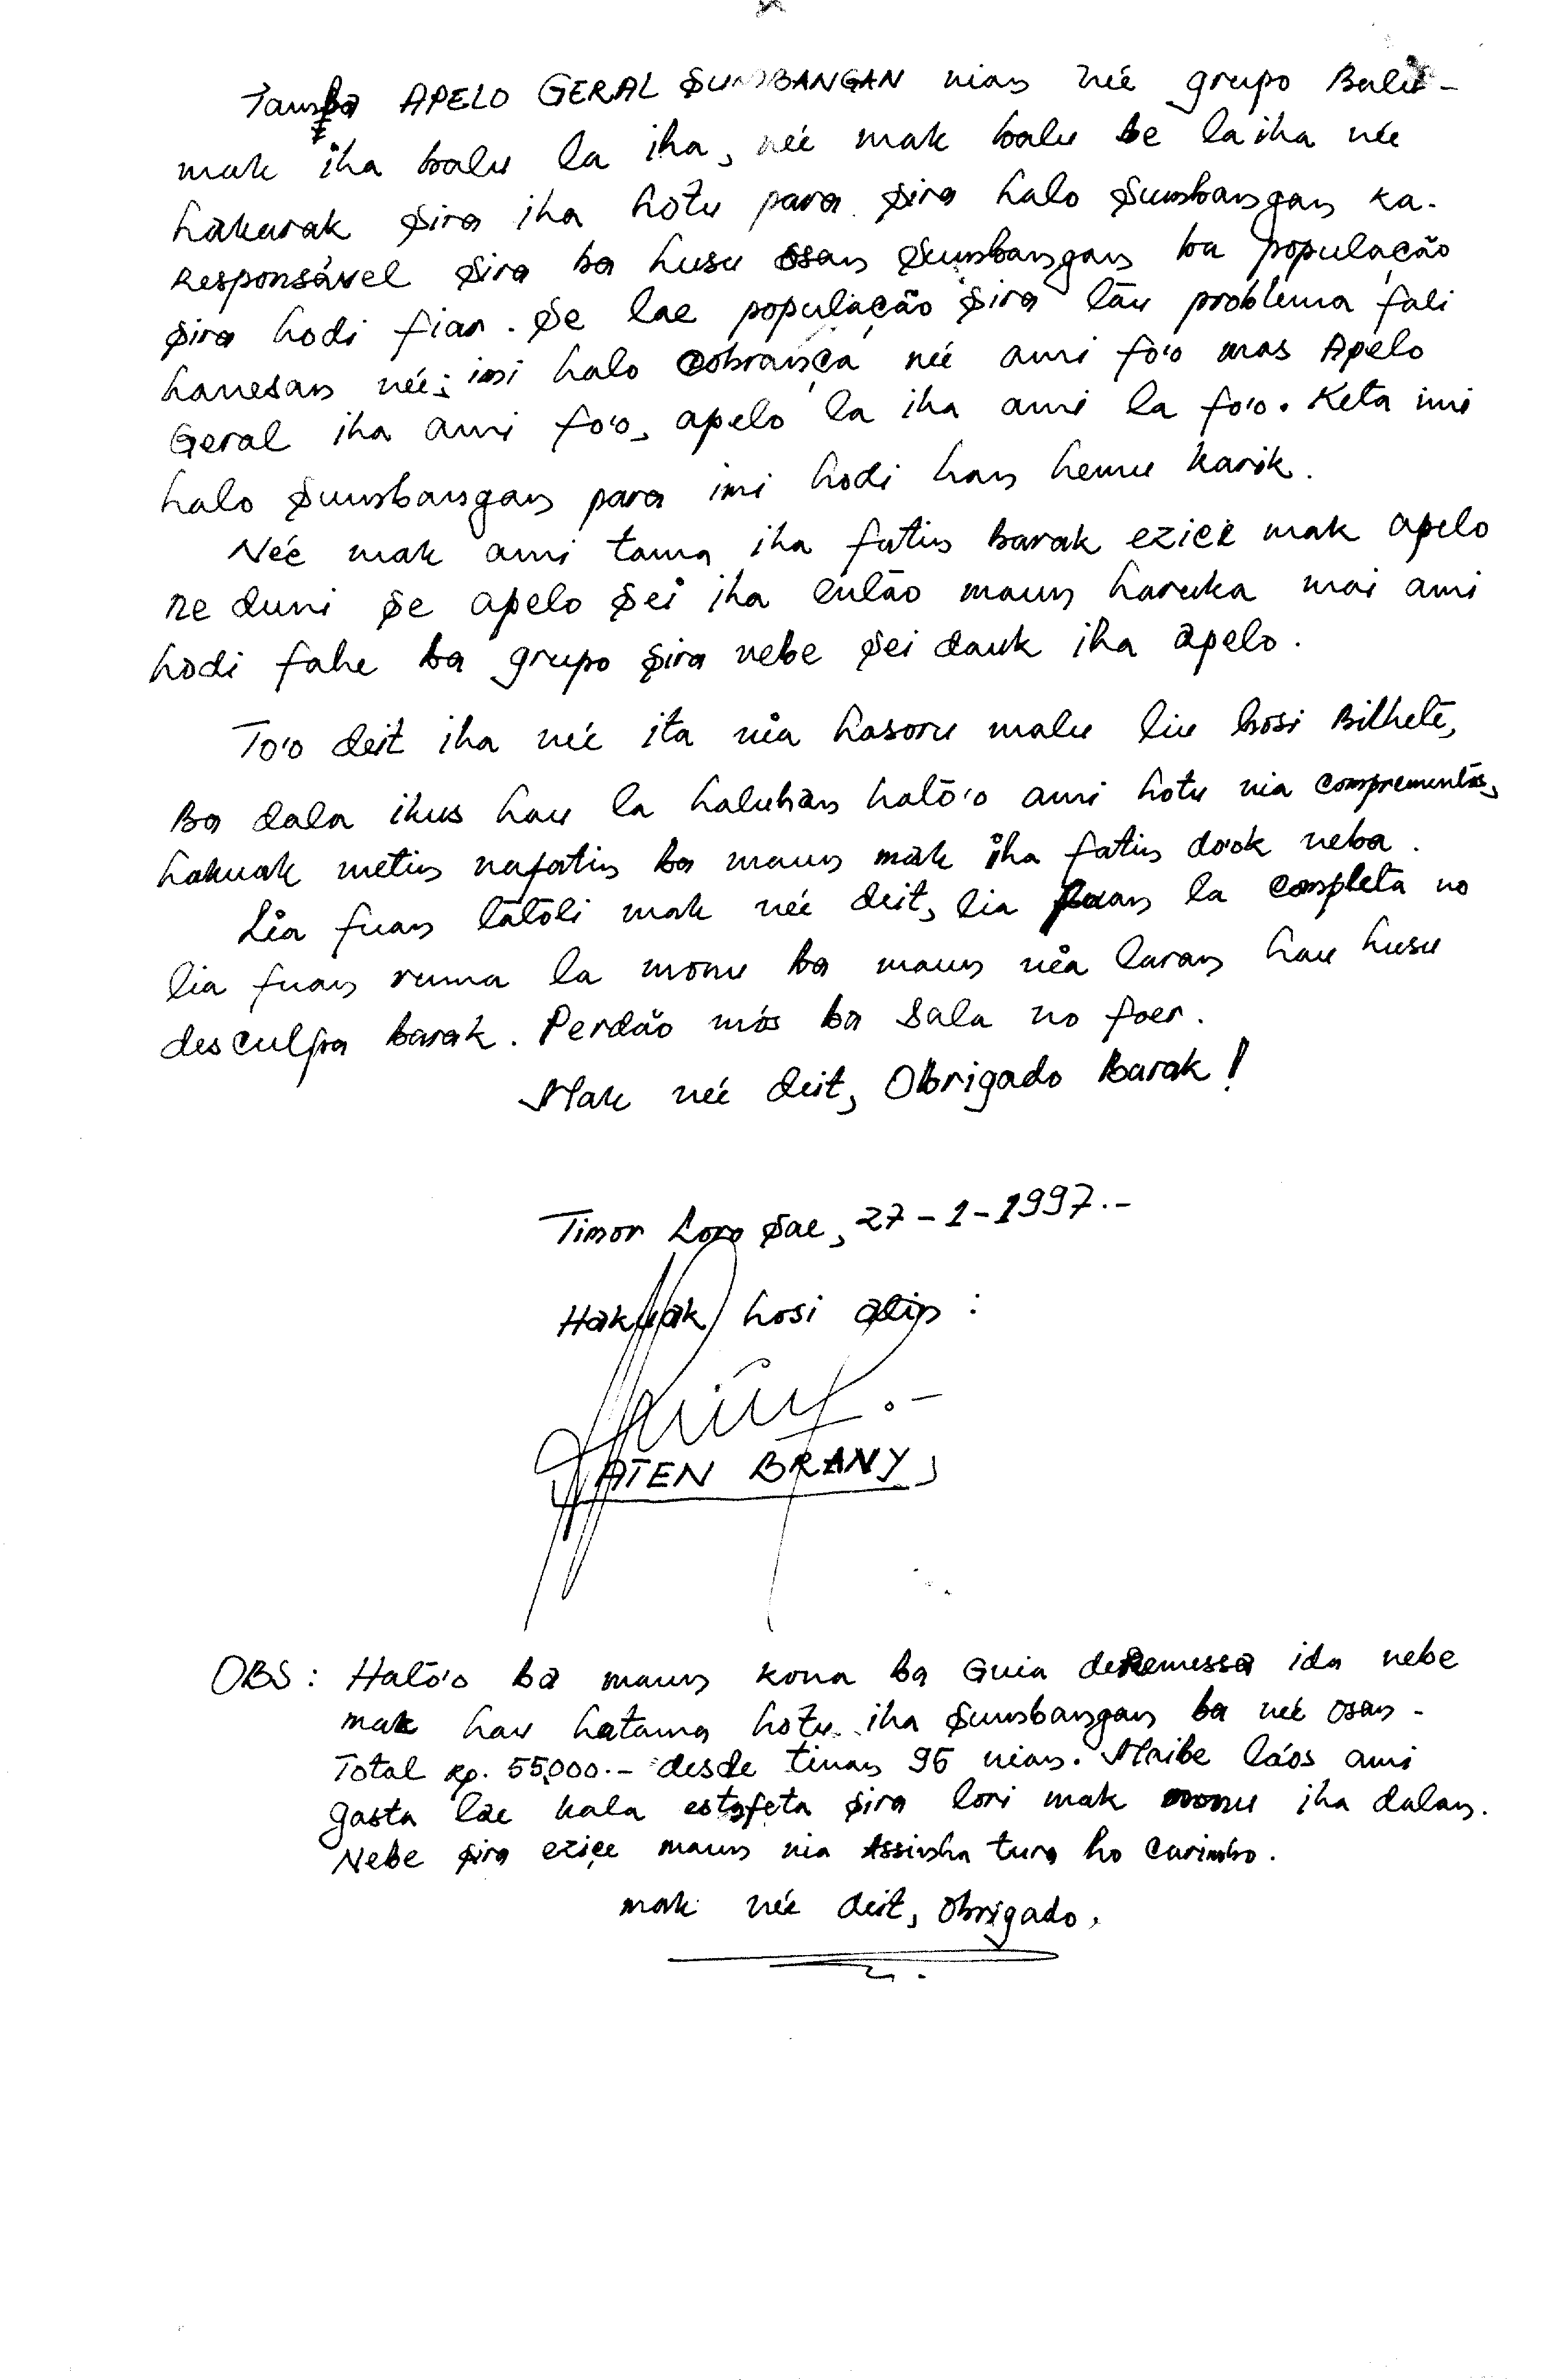 Tamba APELO GERAL SUMBANGAN nian né'e grupo Balu-
mak iha balu la iha, né'e mak balu be la iha né'e
hakarak sira iha hotu para sira halo sumbangan ka.
Responsável sira ba husu osan sumbangan ba população
sira hodi fiar. Se lae população sira tāu problema fali
hanesan né'e; imi halo cobrança né'e ami fo'o mas Apelo
Geral iha ami fo'o, apelo la iha ami la fo'o. Keta imi
halo sumbangan para imi hodi han hemu karik.
Né'e mak ami tama iha fatin barak ezice mak apelo
ne duni se apelo sei iha entāo maun haruka mai ami
hodi fahe ba grupo sira nebe sei dauk iha apelo.
To'o deit iha né'e ita nia hasoru malu liu hosi Bilhete,
Ba dala ikus hau la haluhan ható'o ami hotu nia comprementos,
hakuak metin nafatin ba maun mak iha fatin do'ok neba.
Lia fuan tatoli mak né'e deit, lia fuan la completa no
lia fuan ruma la monu ba maun nia laran hau husu
desculpa barak. Perdão mós ba sala no foer.
Mak né'e deit, Obrigado Barak!
Timor Loro Sae, 27-1-1997.-
Hakuak hosi alin :
ATEN BRANY,
OBS:Ható'o ba maun kona ba Guia de Remessa ida nebe
mak hau hatama hotu iha sumbangan ba né'e osan-
Total Rp. 55,000.- desde tinan 96 nian. Maibe lá'os ami
gasta lae kala estafeta sira lori mak monu iha dalan.
Nebe sira ezice maun nia Assinha tura ho carimbo.
mak né'e deit, Obrigado.